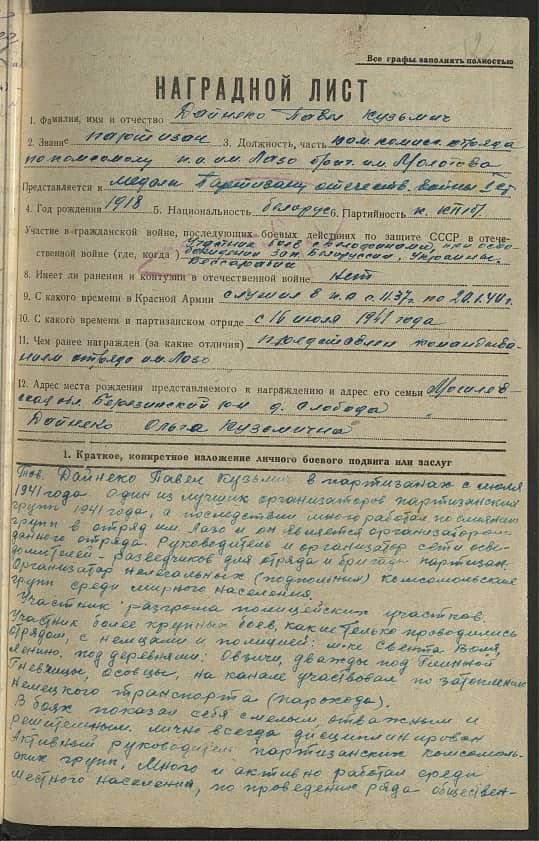 Все графы заполнять полностью
НАГРАДНОЙ ЛИСТ
1. Фамилия, имя и отчество Дайнеко Павел Кузьмич
2. Звание партизан 3. Должность, часть пом. комис. отряда
по комсомолу п.о. им. Лазо бриг. им. Молотова
Представляется к медали Партизану отечеств. войны I ст
4. Год рождения 1918 5. Национальность белорус 6. Партийность к. КП/б/
Участие в гражданской войне, последующих боевых действиях по защите СССР в отече-
ственной войне (где, когда) Участник боев с белофинами, при осво-
бождении зап. Белоруссии, Украины,
Бессарабии
8. Имеет ли ранения и контузии в отечественной войне Нет
9. С какого времени в Красной Армии служил в к.а с 11.37г. по 20.1.40г.
10. С какого времени в партизанском отряде с 16 июля 1941 года
11. Чем ранее награжден (за какие отличия) представлен командова-
нием отряда им. Лазо
12. Адрес места рождения представляемого к награждению и адрес его семьи Могилев-
ская обл. Березинский р-н д. Слобода
Дайнеко Ольга Кузьминична
1. Краткое, конкретное изложение личного боевого подвига или заслуг
Тов. Дайнеко Павел Кузьмич в партизанах с июля
1941 года. Один из лучших организаторов партизанских
групп 1941 года, а последствии много работал по слиянию
групп в отряд им. Лазо и он является организатором
данного отряда. Руководитель и организатор сети осве-
домителей - разведчиков для отряда и бригады партизан.
Организатор нелегальных (подпольных) комсомольских
групп среди мирного населения.
Участник разгрома полицейских участков.
Участник более крупных боев, какие только проводились
отрядом, с немцами и полицией: м-ке Свента Воля,
Ленино. под деревнями: Овзичи, дважды под Глинной
Гневчицы, Осовцы, на канале участвовал по затоплению
немецкого транспорта (парохода).
В боях показал себя смелым, отважным и
решительным. лично всегда дисциплинирован
Активный руководитель партизанских комсомоль-
ских групп. Много и активно работал среди
местного населения, по проведению ряда обществен-